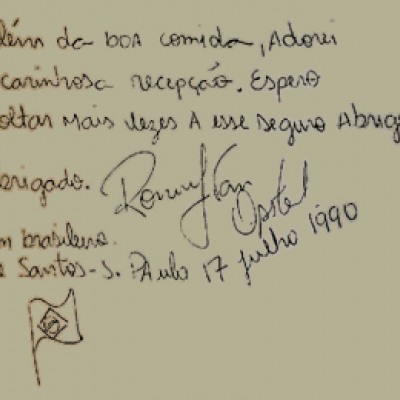 lém da boa comida, Adorei
carinhosa recepção. Espero
oltar mais vezes A esse seguro Abrig
brigado.
m brasileiro.
e Santos-S. Paulo 17 julho 1990